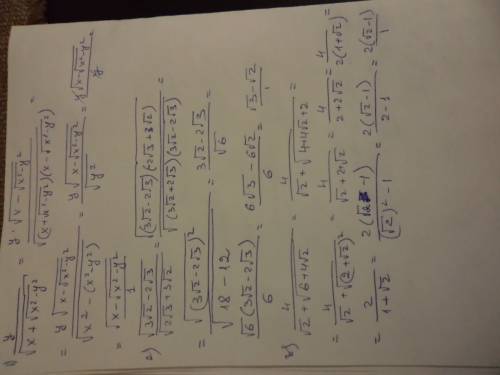 1) \frac{y}{\sqrt{x+\sqrt{x^2-y^2}}} = \frac{y\cdot\sqrt{x-\sqrt{x^2-y^2}}}{\sqrt{(x+\sqrt{x^2-y^2})(x-\sqrt{x^2-y^2})}} =
= \frac{y\sqrt{x-\sqrt{x^2-y^2}}}{\sqrt{x^2-(x^2-y^2)}} = \frac{y\sqrt{x-\sqrt{x^2-y^2}}}{\sqrt{y^2}} = \frac{y\sqrt{x-\sqrt{x^2-y^2}}}{y} =
= \frac{\sqrt{x-\sqrt{x^2-y^2}}}{1}
2) \frac{\sqrt{3\sqrt{2}-2\sqrt{3}}}{\sqrt{2\sqrt{3}+3\sqrt{2}}} = \frac{\sqrt{(3\sqrt{2}-2\sqrt{3})(-2\sqrt{3}+3\sqrt{2})}}{\sqrt{(3\sqrt{2}+2\sqrt{3})(3\sqrt{2}-2\sqrt{3})}} =
= \frac{\sqrt{(3\sqrt{2}-2\sqrt{3})^2}}{\sqrt{18-12}} = \frac{3\sqrt{2}-2\sqrt{3}}{\sqrt{6}} =
\frac{\sqrt{6}(3\sqrt{2}-2\sqrt{3})}{6} = \frac{6\sqrt{3}-6\sqrt{2}}{6} = \frac{\sqrt{3}-\sqrt{2}}{1}
\frac{4}{\sqrt{2}+\sqrt{6+4\sqrt{2}}} = \frac{4}{\sqrt{2}+\sqrt{4+4\sqrt{2}+2}} =
= \frac{4}{\sqrt{2}+\sqrt{(2+\sqrt{2})^2}} = \frac{4}{\sqrt{2}+2+\sqrt{2}} = \frac{4}{2+2\sqrt{2}} = \frac{4}{2(1+\sqrt{2})} =
= \frac{2}{1+\sqrt{2}} = \frac{2(\sqrt{2}-1)}{(\sqrt{2})^2-1} = \frac{2(\sqrt{2}-1)}{2-1} = \frac{2(\sqrt{2}-1)}{1}